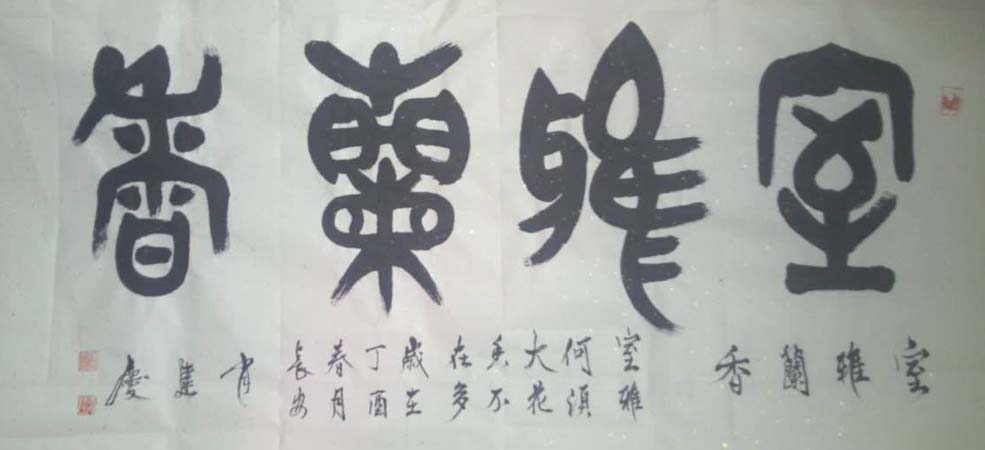 室雅蘭香
室雅蘭香
室雅
何須
大花
香不
在多
歲在
丁酉
春月
長安
肖
慶